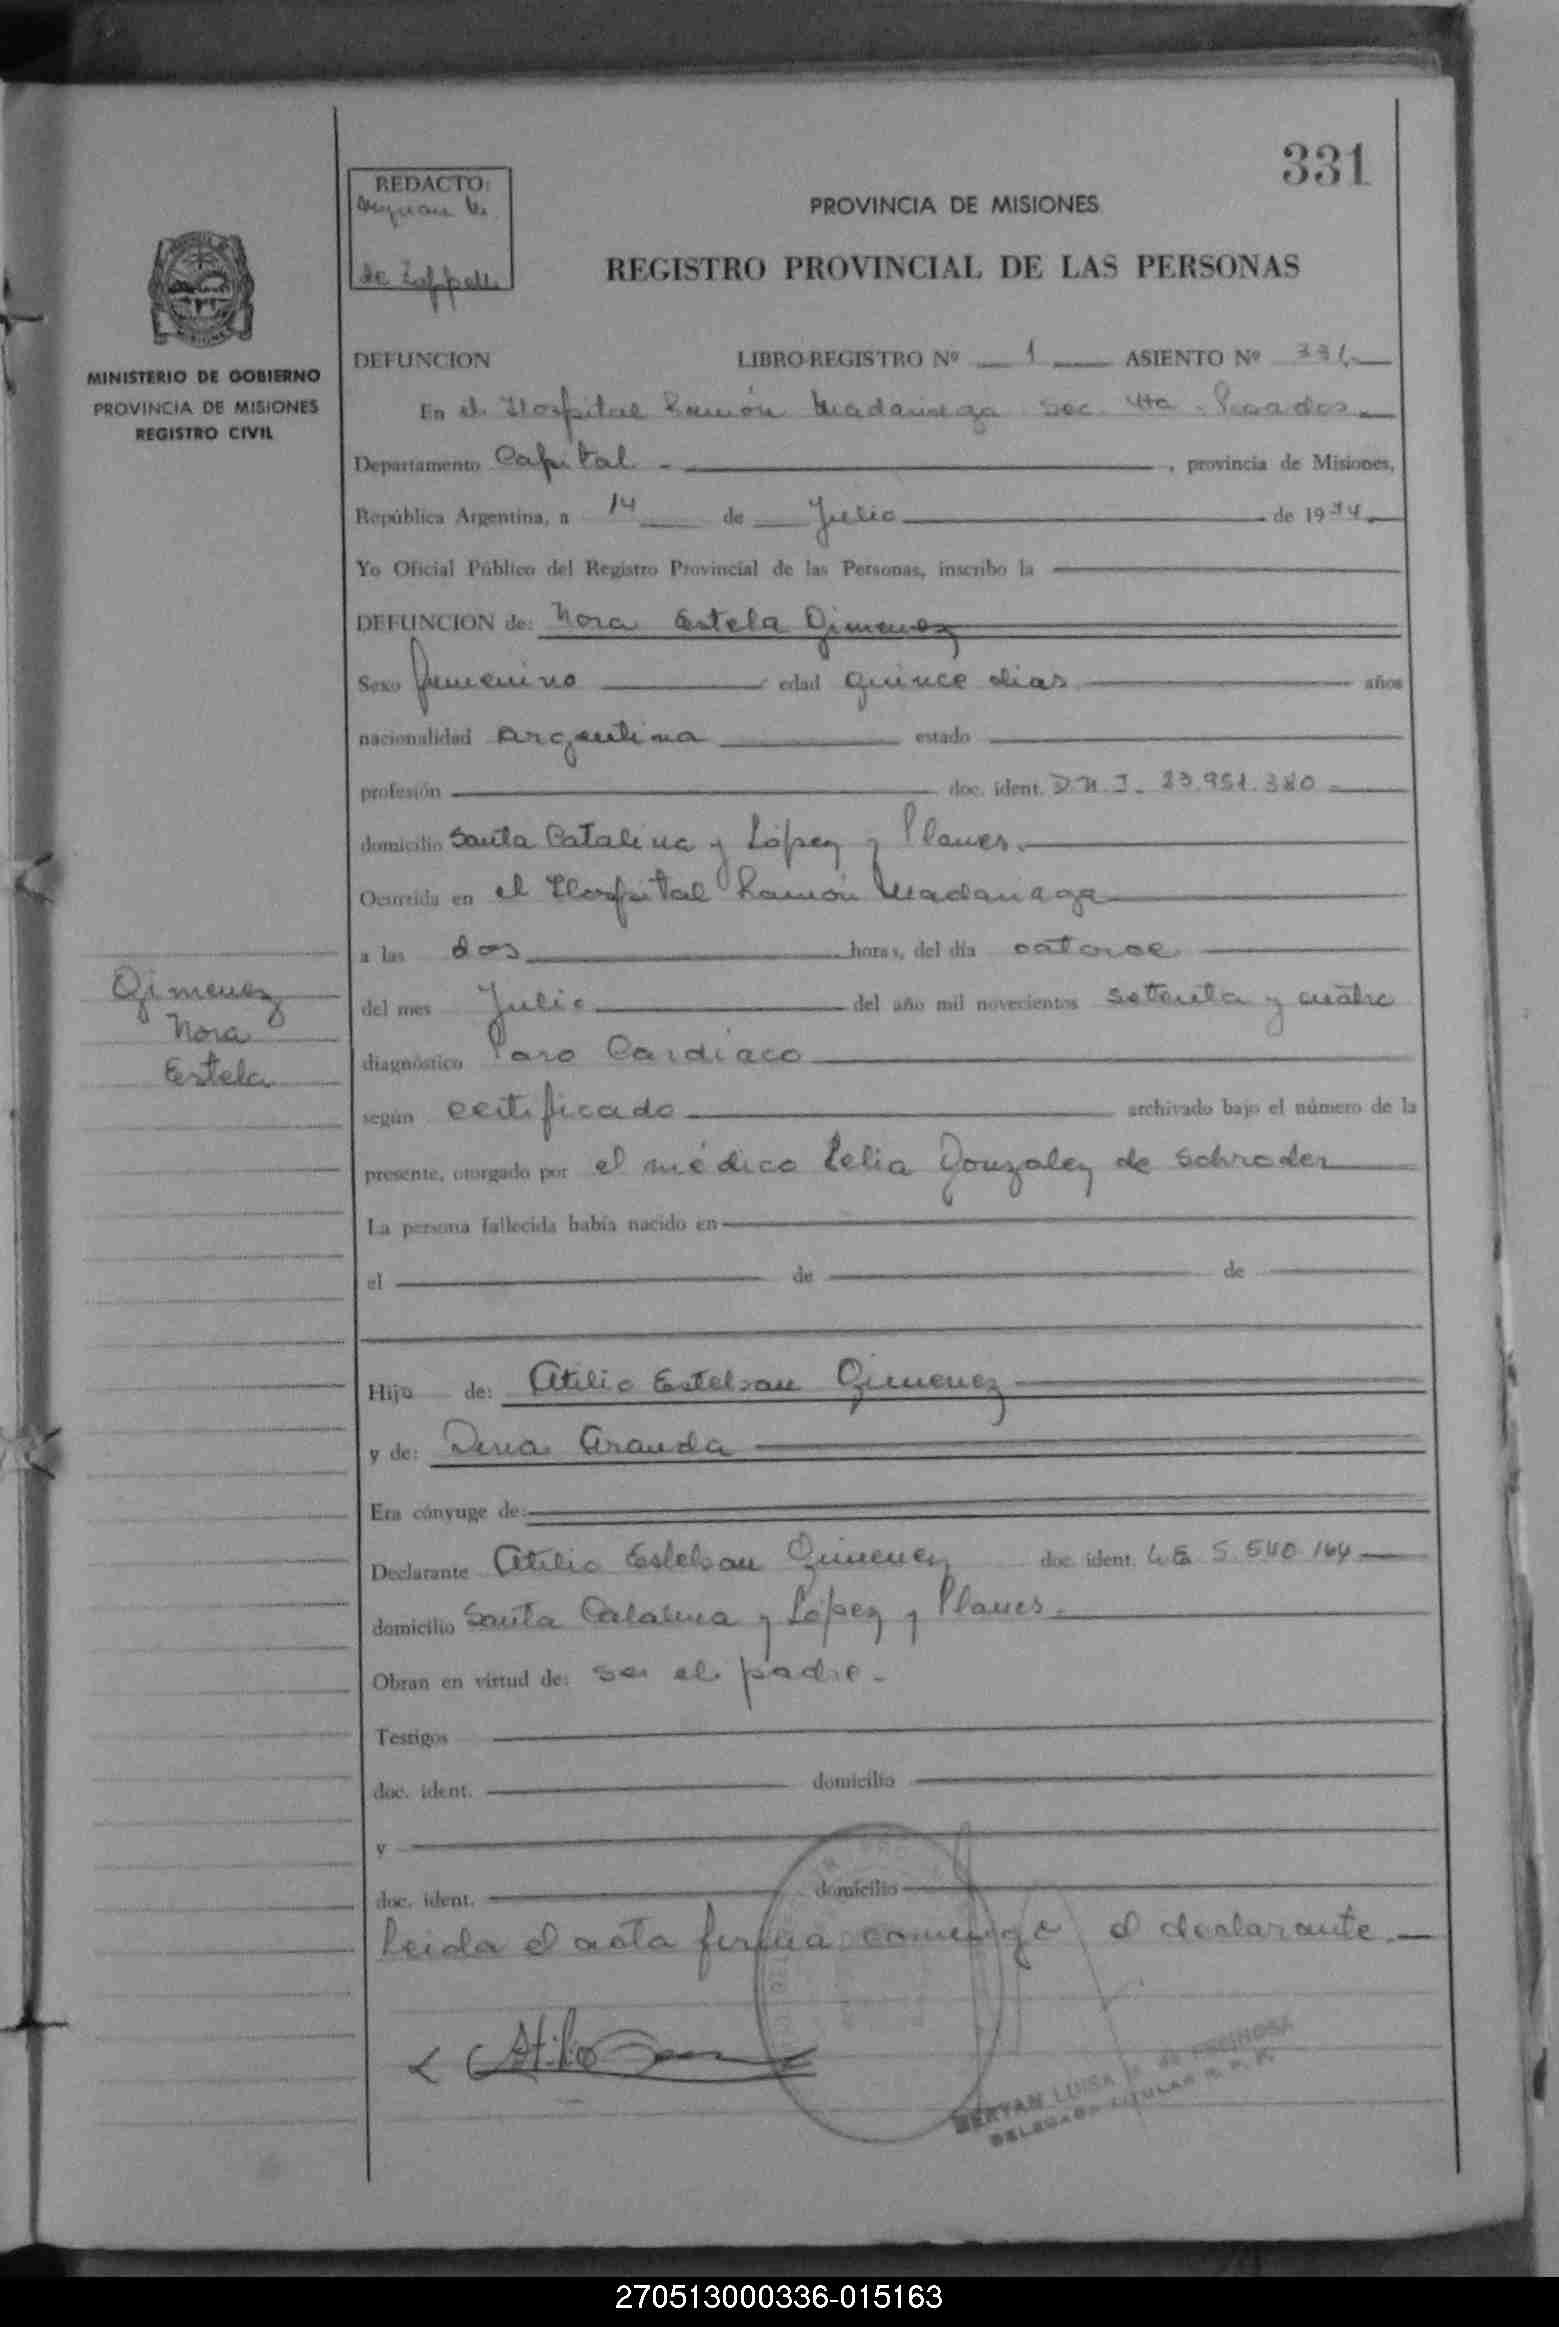 331
REDACTO:
de Zappelli
PROVINCIA DE MISIONES
REGISTRO PROVINCIAL DE LAS PERSONAS
MISIONES
MINISTERIO DE GOBIERNO
PROVINCIA DE MISIONES
REGISTRO CIVIL
DEFUNCION LIBRO-REGISTRO Nº 1 ASIENTO Nº 331
En el Hospital Ramón Madariaga Sec. 4ta. Posadas
Departamento Capital - , provincia de Misiones,
República Argentina, a 14 de Julio de 1974
Yo Oficial Público del Registro Provincial de las Personas, inscribo la
DEFUNCION de: Nora Estela Gimenez
Sexo femenino edad quince dias años
nacionalidad argentina estado
profesión doc. ident. D.N.I. 23.951.380
domicilio Santa Catalina y López y Planes.
Ocurrida en el Hospital Ramón Madariaga
a las dos horas, del día catorce
Gimenez
Nora
Estela
del mes Julio del año mil novecientos setenta y cuatro
diagnóstico Paro Cardíaco
según certificado archivado bajo el número de la
presente, otorgado por el médico Celia Gonzalez de Schroder
La persona fallecida había nacido en
el de de
Hija de: Atilio Esteban Gimenez
y de: Aranda
Era cónyuge de:
Declarante Atilio Esteban Gimenez doc. ident. L.E 5.540.164
domicilio Santa Catalina y López y Planes.
Obran en virtud de: ser el padre.-
Testigos
doc. ident. domicilio
y
doc. ident. domicilio
Leida el acta firma conmigo el declarante.
Atilio
LUISA DE ESPINOSA
DELEGADA TITULAR R. P. P.
270513000336-015163